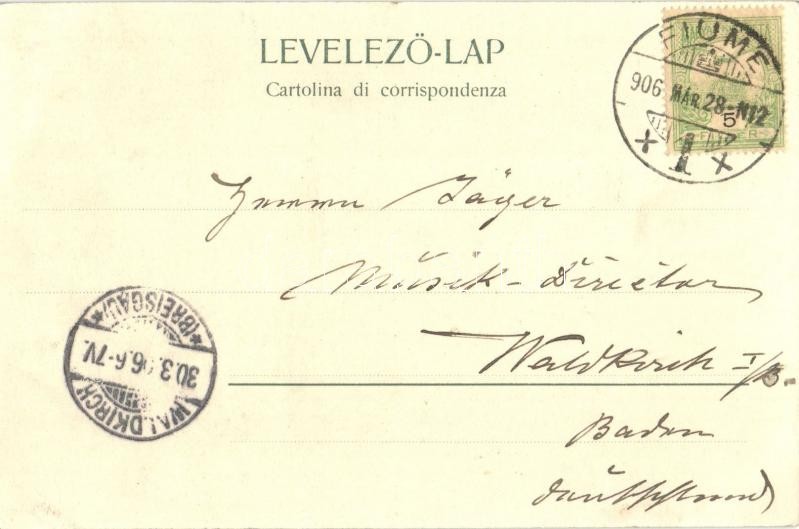 LEVELEZÖ-LAP
Cartolina di corrispondenza
FIUME
906 MÁR. 28-N12
5
1
Herrn Jäger
Musik-Director
Waldkirch I/B.
Baden
Deutschland
(BREISGAU)
30.3.06.6-7V.
WALDKIRCH